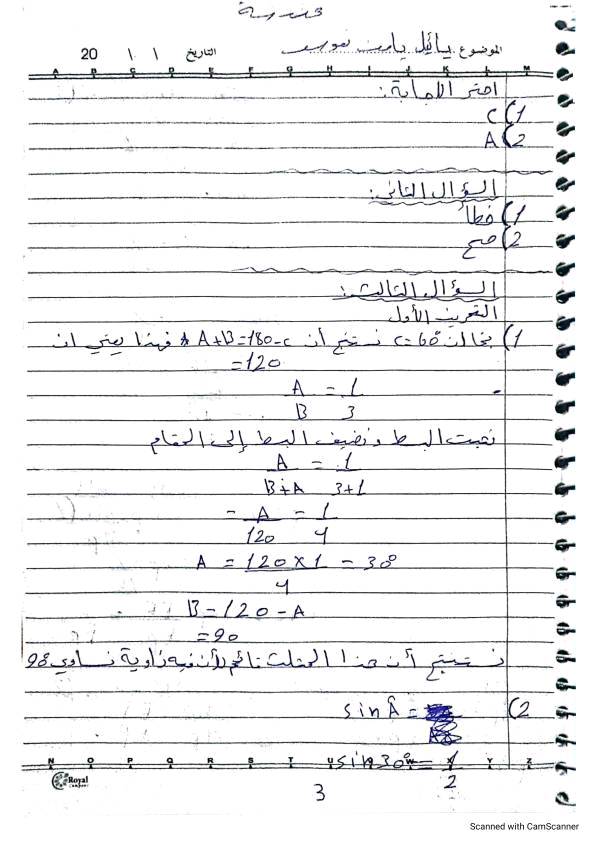 هندسة
الموضوع: يائيل يامن
التاريخ ١ ١ 20
A B C D E F G H I J K L M
اختر الإجابة:
1) C
2) A
السؤال الثاني:
1) خطأ
2) صح
السؤال الثالث:
التمرين الأول
1) بما ان C=60 نستنتج أن A+B=180-c فهذا يعني ان
=120
A/B = 1/3
نثبت البسط ونضيف البسط إلى المقام
A/B+A = 1/3+1
A/120 = 1/4
A = 120×1/4 = 30°
B=120-A
=90
نستنتج أن هذا المثلث قائم لأن فيه زاوية تساوي 90
2) sin Â =
sin 30° = 1/2
N O P Q R S T U V W X Y Z
Royal
3
Scanned with CamScanner